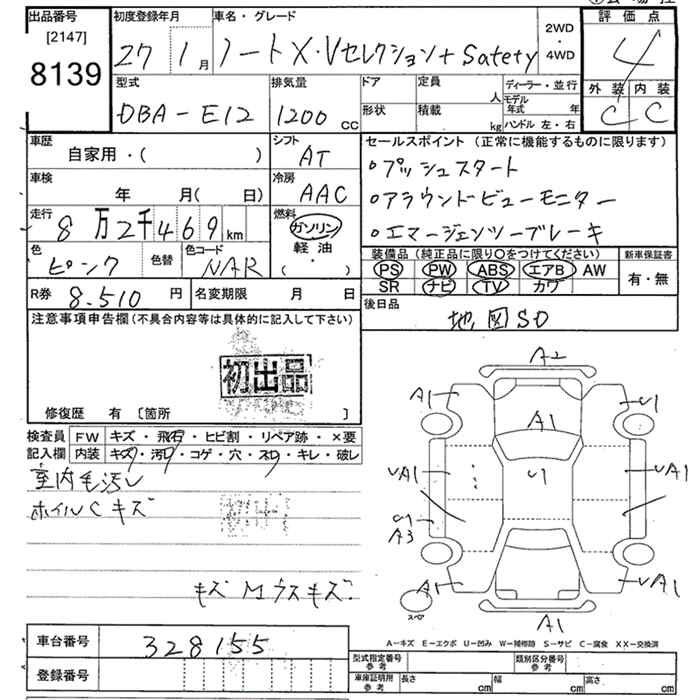 出品番号
[2147]
8139
初度登録年月
27 1月
車名・グレード
ノートX・Vセレクション+Safety
2WD
4WD
評価点
4
外装 内装
C C
型式
DBA-E12
排気量
1200cc
ドア
形状
定員 人
積載 kg
ディーラー・並行
モデル年式 年
ハンドル 左・右
車歴
自家用・( )
シフト
AT
セールスポイント(正常に機能するものに限ります)
・プッシュスタート
・アラウンドビューモニター
・エマージェンツーブレーキ
車検
年 月( 日)
冷房
AAC
走行
8万2千469km
燃料
ガソリン
軽油
( ・ )
色
ピンク
色替
色コード
NAR
装備品(純正品に限り○をつけてください)
PS PW ABS エアB AW
SR ナビ TV カワ
新車保証書
有・無
R券
8.510円
名変期限 月 日
後日品
地図SD
注意事項申告欄(不具合内容等は具体的に記入して下さい)
初出品
修復歴 有 〔箇所 〕
検査員記入欄
FW キズ・飛石・ヒビ割・リペア跡・×要
内装 キズ・汚れ・コゲ・穴・スレ・キレ・破レ
室内毛汚レ
ホイルCキズ
キズ Mウスキズ
A2
A1 A1 U1
UA1 U1 UA1
U1
A3
A1 UA1
A1
スペア
A-キズ E-エクボ U-凹み W-補修跡 S-サビ C-腐食 XX-交換済
車台番号
328155
登録番号
型式指定番号 参考
類別区分番号 参考
車庫証明用 参考
長さ cm 幅 cm 高さ cm